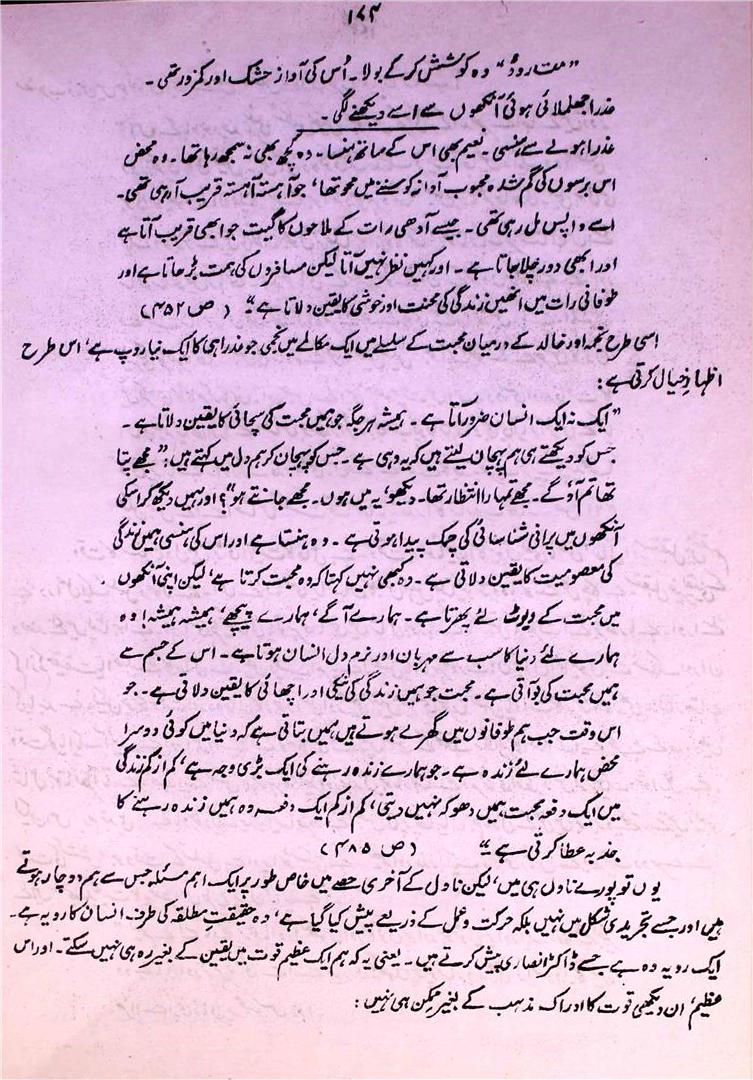 ۱۷۴
”مت رو“ وہ کوشش کر کے بولا۔ اُس کی آواز خشک اور کمزور تھی۔
عذرا جھلملائی ہوئی آنکھوں سے اسے دیکھنے لگی۔
عذرا ہولے سے ہنسی۔ نعیم بھی اس کے ساتھ ہنسا۔ وہ کچھ بھی نہ سمجھ رہا تھا۔ وہ محض
اس برسوں کی گم شدہ محبوب آواز کو سننے میں محو تھا، جو آہستہ آہستہ قریب آ رہی تھی۔
اسے واپس مل رہی تھی۔ جیسے آدھی رات کے ملاحوں کا گیت جو ابھی قریب آتا ہے
اور ابھی دور چلا جاتا ہے۔ اور کہیں نظر نہیں آتا لیکن مسافروں کی ہمت بڑھاتا ہے اور
طوفانی رات میں انھیں زندگی کی محنت اور خوشی کا یقین دلاتا ہے“ (ص ۴۵۲)
اسی طرح نجمہ اور خالد کے درمیان محبت کے سلسلے میں ایک مکالمے میں نجمی جو عذرا ہی کا ایک نیا روپ ہے، اس طرح
اظہارِ خیال کرتی ہے:
”ایک نہ ایک انسان ضرور آتا ہے۔ ہمیشہ ہر جگہ جو ہمیں محبت کی سچائی کا یقین دلاتا ہے۔
جس کو دیکھتے ہی ہم پہچان لیتے ہیں کہ یہ وہی ہے۔ جس کو پہچان کر ہم دل میں کہتے ہیں: ”مجھے پتا
تھا تم آؤ گے۔ مجھے تمہارا انتظار تھا۔ دیکھو، یہ میں ہوں۔ مجھے جانتے ہو“؟ اور ہمیں دیکھ کر اس کی
آنکھوں میں پرانی شناسائی کی چمک پیدا ہوتی ہے۔ وہ ہنستا ہے اور اس کی ہنسی ہمیں زندگی
کی معصومیت کا یقین دلاتی ہے۔ وہ کبھی نہیں کہتا کہ وہ محبت کرتا ہے، لیکن اپنی آنکھوں
میں محبت کے دیوٹ لئے پھرتا ہے۔ ہمارے آگے، ہمارے پیچھے، ہمیشہ ہمیشہ! وہ
ہمارے لئے دنیا کا سب سے مہربان اور نرم دل انسان ہوتا ہے۔ اس کے جسم سے
ہمیں محبت کی بو آتی ہے۔ محبت جو ہمیں زندگی کی نیکی اور اچھائی کا یقین دلاتی ہے۔ جو
اس وقت جب ہم طوفانوں میں گھرے ہوتے ہیں ہمیں بتاتی ہے کہ دنیا میں کوئی دوسرا
محض ہمارے لئے زندہ ہے۔ جو ہمارے زندہ رہنے کی ایک بڑی وجہ ہے، کم از کم زندگی
میں ایک دفعہ محبت ہمیں دھوکہ نہیں دیتی، کم از کم ایک دفعہ وہ ہمیں زندہ رہنے کا
جذبہ عطا کرتی ہے“ (ص ۴۸۵)
یوں تو پورے ناول ہی میں، لیکن ناول کے آخری حصے میں خاص طور پر ایک اہم مسئلہ جس سے ہم دوچار ہوتے
ہیں اور جسے تجریدی شکل میں نہیں بلکہ حرکت و عمل کے ذریعے پیش کیا گیا ہے، وہ حقیقتِ مطلقہ کی طرف۔ انسان کا رویہ ہے۔
ایک رویہ وہ ہے جسے ڈاکٹر انصاری پیش کرتے ہیں۔ یعنی یہ کہ ہم ایک عظیم قوت میں یقین کے بغیر رہ ہی نہیں سکتے۔ اور اس
عظیم، ان دیکھی قوت کا ادراک مذہب کے بغیر ممکن ہی نہیں: